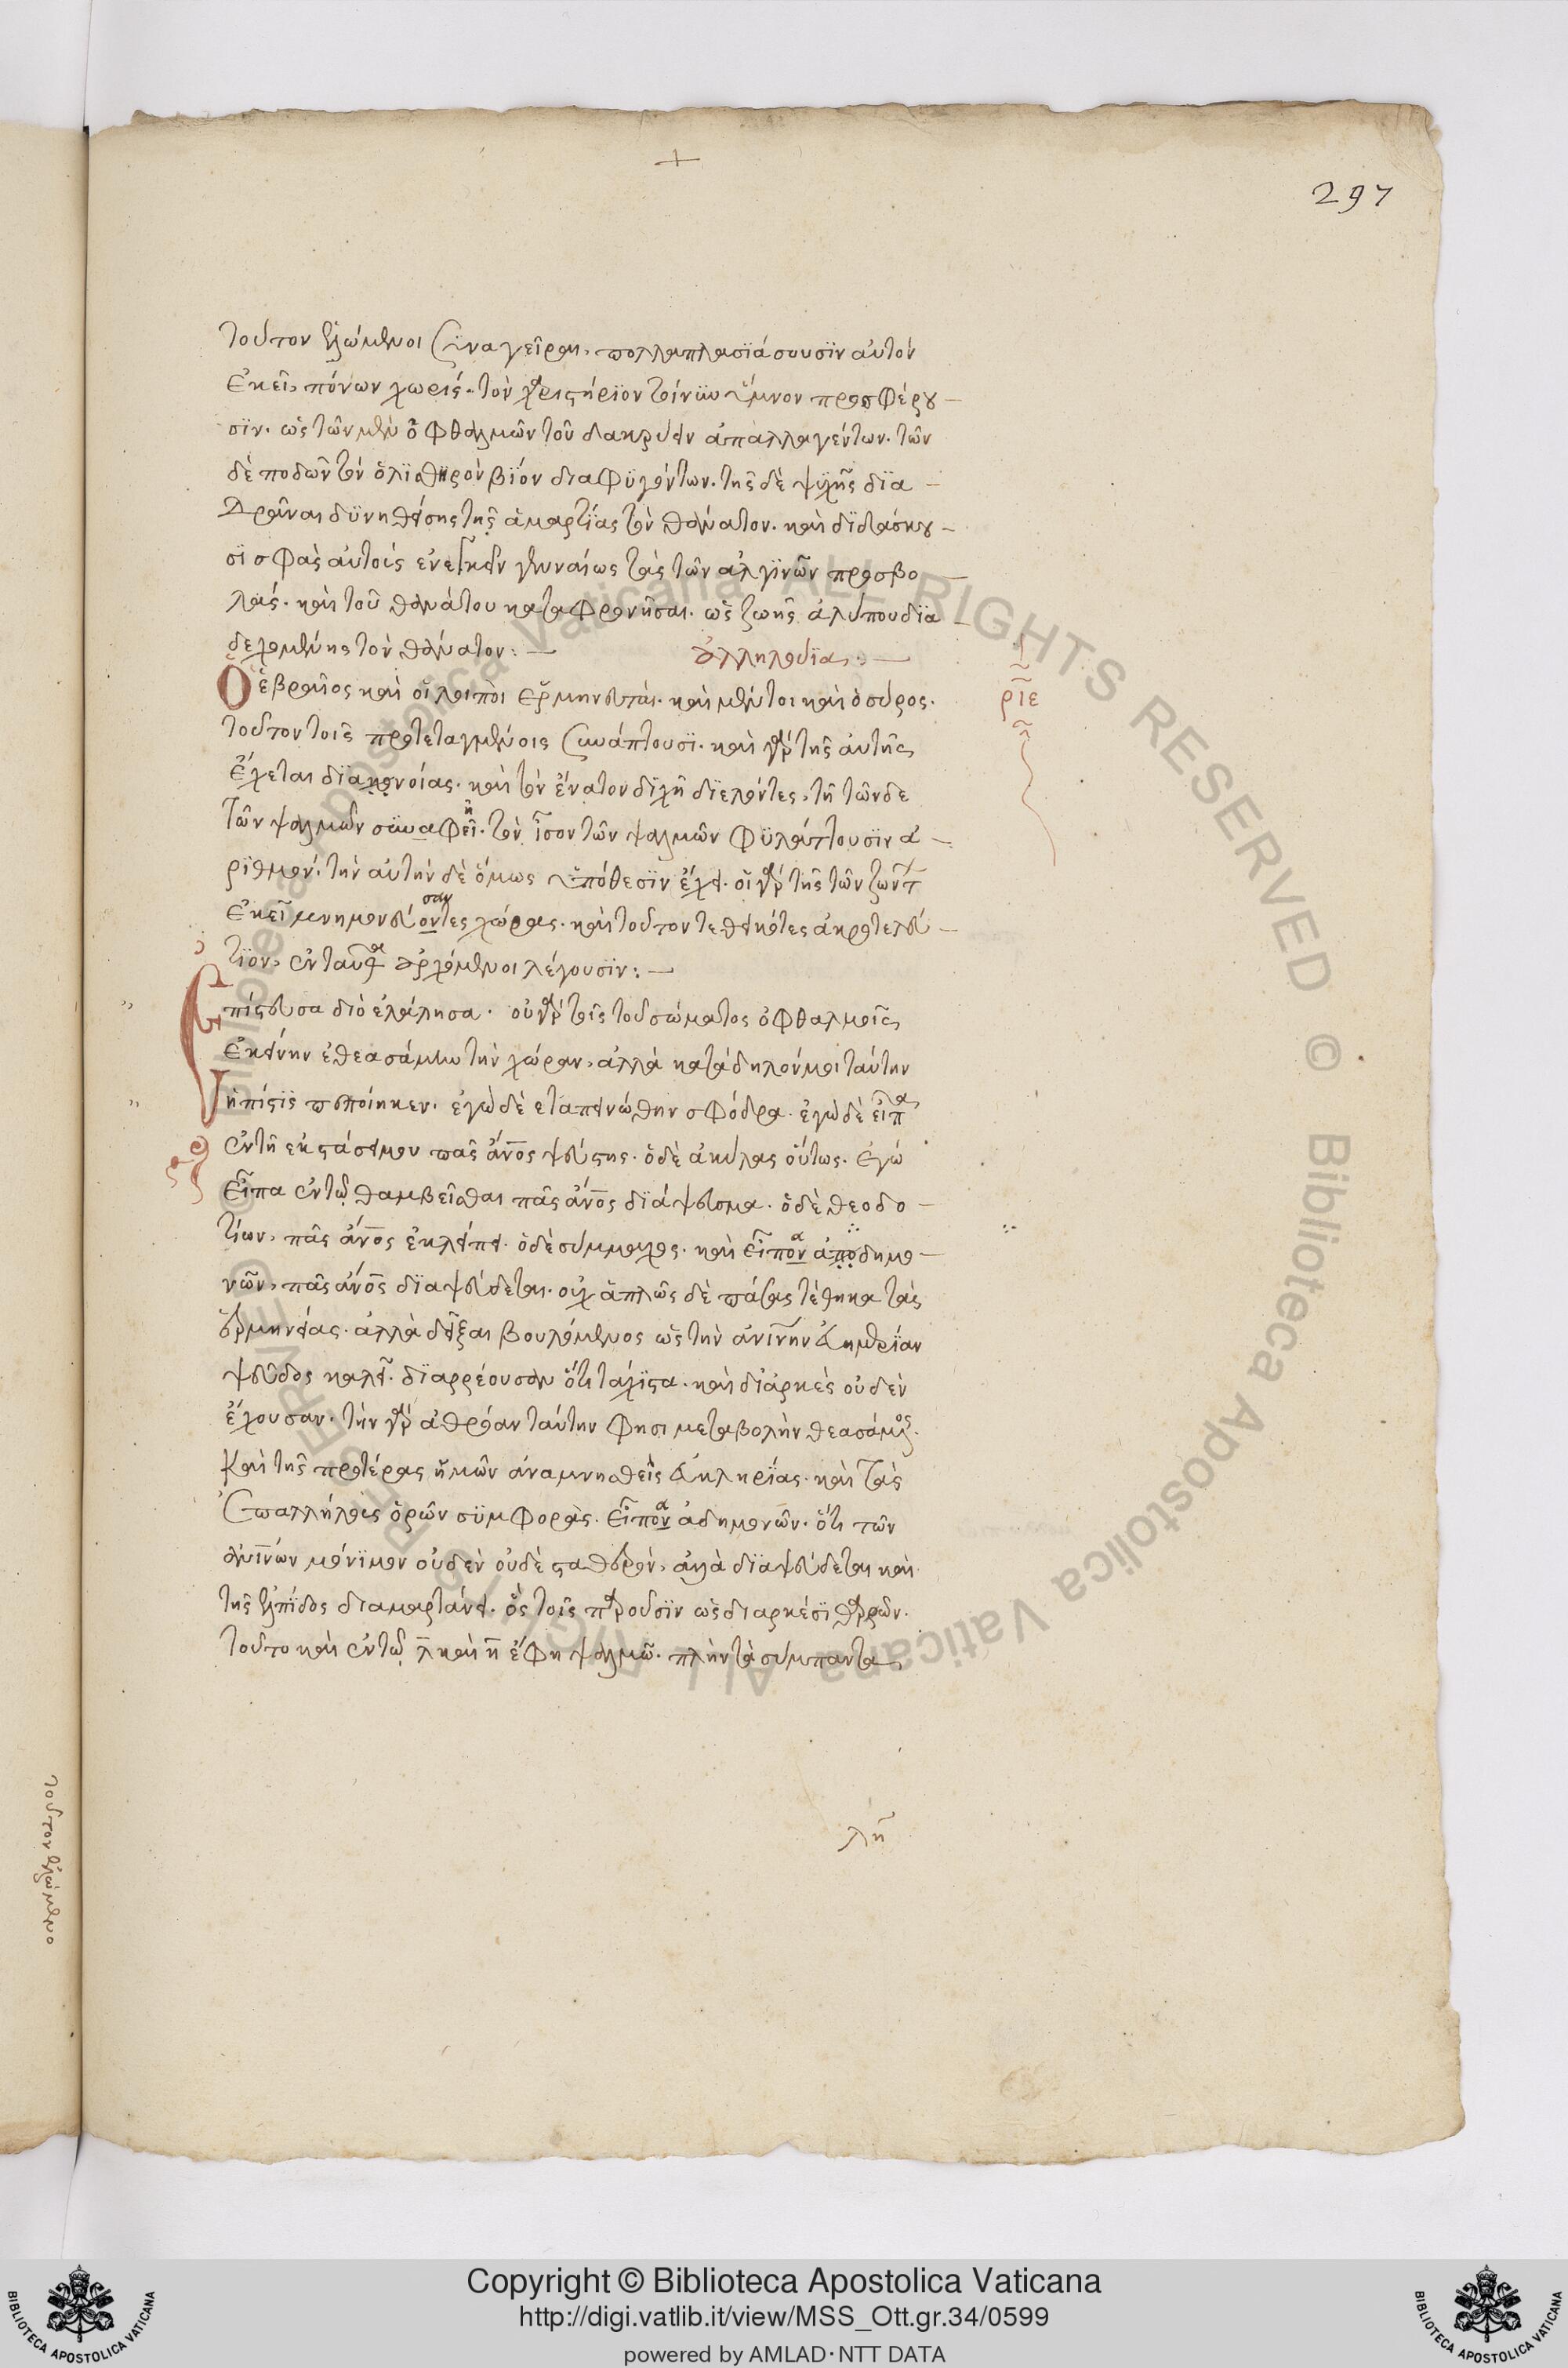 297
τοῦτον ἑλόμενοι συναγεῖραι, πολλαπλασϊάσουσϊν αὐτὸν
ἐκεῖ, πόνων χωρίς. τὸν χαριστήρϊον τοίνϋν ὕμνον προσφέρου
σϊν. ὡς τῶν μὲν ὀφθαλμῶν τοῦ δακρύειν ἀπαλλαγέντων. τῶν
δὲ ποδῶν τὸν ὀλϊσθηρὸν βίον διαφϋγόντων. τῆς δὲ ψϋχῆς δϊα
δρᾶναι δϋνηθείσης τῆς ἁμαρτϊας τὸν θάνατον. καὶ δϊδάσκου
σϊ σφᾶς αὐτοὺς ἐνεγκεῖν γενναίως τὰς τῶν ἀλγϊνῶν προσβο
λάς. καὶ τοῦ θανάτου καταφρονῆσαι. ὡς ζωῆς ἀλύπου δϊα
δεχομένης τὸν θάνατον:
ἀλληλούϊα:
ριε
Ὁ ἑβραῖος καὶ οἱ λοιποὶ ἑρμηνευταὶ. καὶ μέντοι καὶ ὁ σύρος.
τοῦτον τοῖς προτεταγμένοις συνάπτουσϊ. καὶ γὰρ τῆς αὐτῆς
ἔχεται δϊανοίας. καὶ τὸν ἔνατον δϊχῆ δϊελόντες, τῆ τῶνδε
τῶν ψαλμῶν σϋναφεῖ. τὸν ἴσον τῶν ψαλμῶν φϋλάττουσϊν ἀ
ρϊθμόν. τὴν αὐτὴν δὲ ὅμως ὑπόθεσϊν ἔχει. οἱ γὰρ τῆς τῶν ζώντ
ἐκεῖ μνημονεύοντες χώρας. καὶ τοῦτον τεθεικότες ἀκροτελεύ
τϊον, ἐνταῦθα ἀρχόμενοι λέγουσϊν:
Ἐπίστευσα διὸ ἐλάλησα. οὐ γὰρ τοῖς τοῦ σώματος ὀφθαλμοῖς
ἐκείνην ἐθεασάμην τὴν χώραν, ἀλλὰ κατάδηλόν μοι ταύτην
ἡ πίστϊς πεποίηκεν. ἐγὼ δὲ ἐταπεινώθην σφόδρα. ἐγὼ δὲ εἶπα
ἐν τῆ ἐκστάσει μου πᾶς ἄνος ψεύστης. ὁ δὲ ἀκύλας οὕτως. ἐγὼ
εἶπα ἐν τῷ θαμβεῖσθαι πᾶς ἄνος δϊάψευσμα. ὁ δὲ θεοδο
τίων, πᾶς ἄνος ἐκλείπει. ὁ δὲ σύμμαχος. καὶ εἶπον ἀποδημο
νῶν, πᾶς ἄνος δϊαψεύδεται. οὐχ ἁπλῶς δὲ πάσας τέθηκα τὰς
ἑρμηνείας. ἀλλὰ δεῖξαι βουλόμενος ὡς τὴν ἀνίνην εὐημερϊαν
ψεῦδος καλεῖ. δϊαρρέουσαν ὅτι τάχϊστα. καὶ διαρκὲς οὐδὲν
ἔχουσαν. τὴν γὰρ ἀθρόαν ταύτην φησι μεταβολὴν θεασάμενος.
καὶ τῆς προτέρας ἡμῶν ἀναμνησθεὶς εὐκληρϊας. καὶ τὰς
ἐπαλλήλους ὁρῶν σϋμφορὰς. εἶπον ἀδημονῶν. ὅτι τῶν
ἀνίνων μόνϊμον οὐδὲν οὐδὲ σταθερόν, ἀλλὰ δϊαψεύδεται καὶ
τῆς ἐλπϊδος διαμαρτάνει. ὁ τοῖς παροῦσϊν ὡς διαρκέσϊ θαρρῶν.
τοῦτο καὶ ἐν τῷ λ καὶ η ἔφη ψαλμῶ. πλὴν τὰ σύμπαντα
λη
τοῦτον ἑλόμενο
Copyright © Biblioteca Apostolica Vaticana
http://digi.vatlib.it/view/MSS_Ott.gr.34/0599
powered by AMLAD·NTT DATA